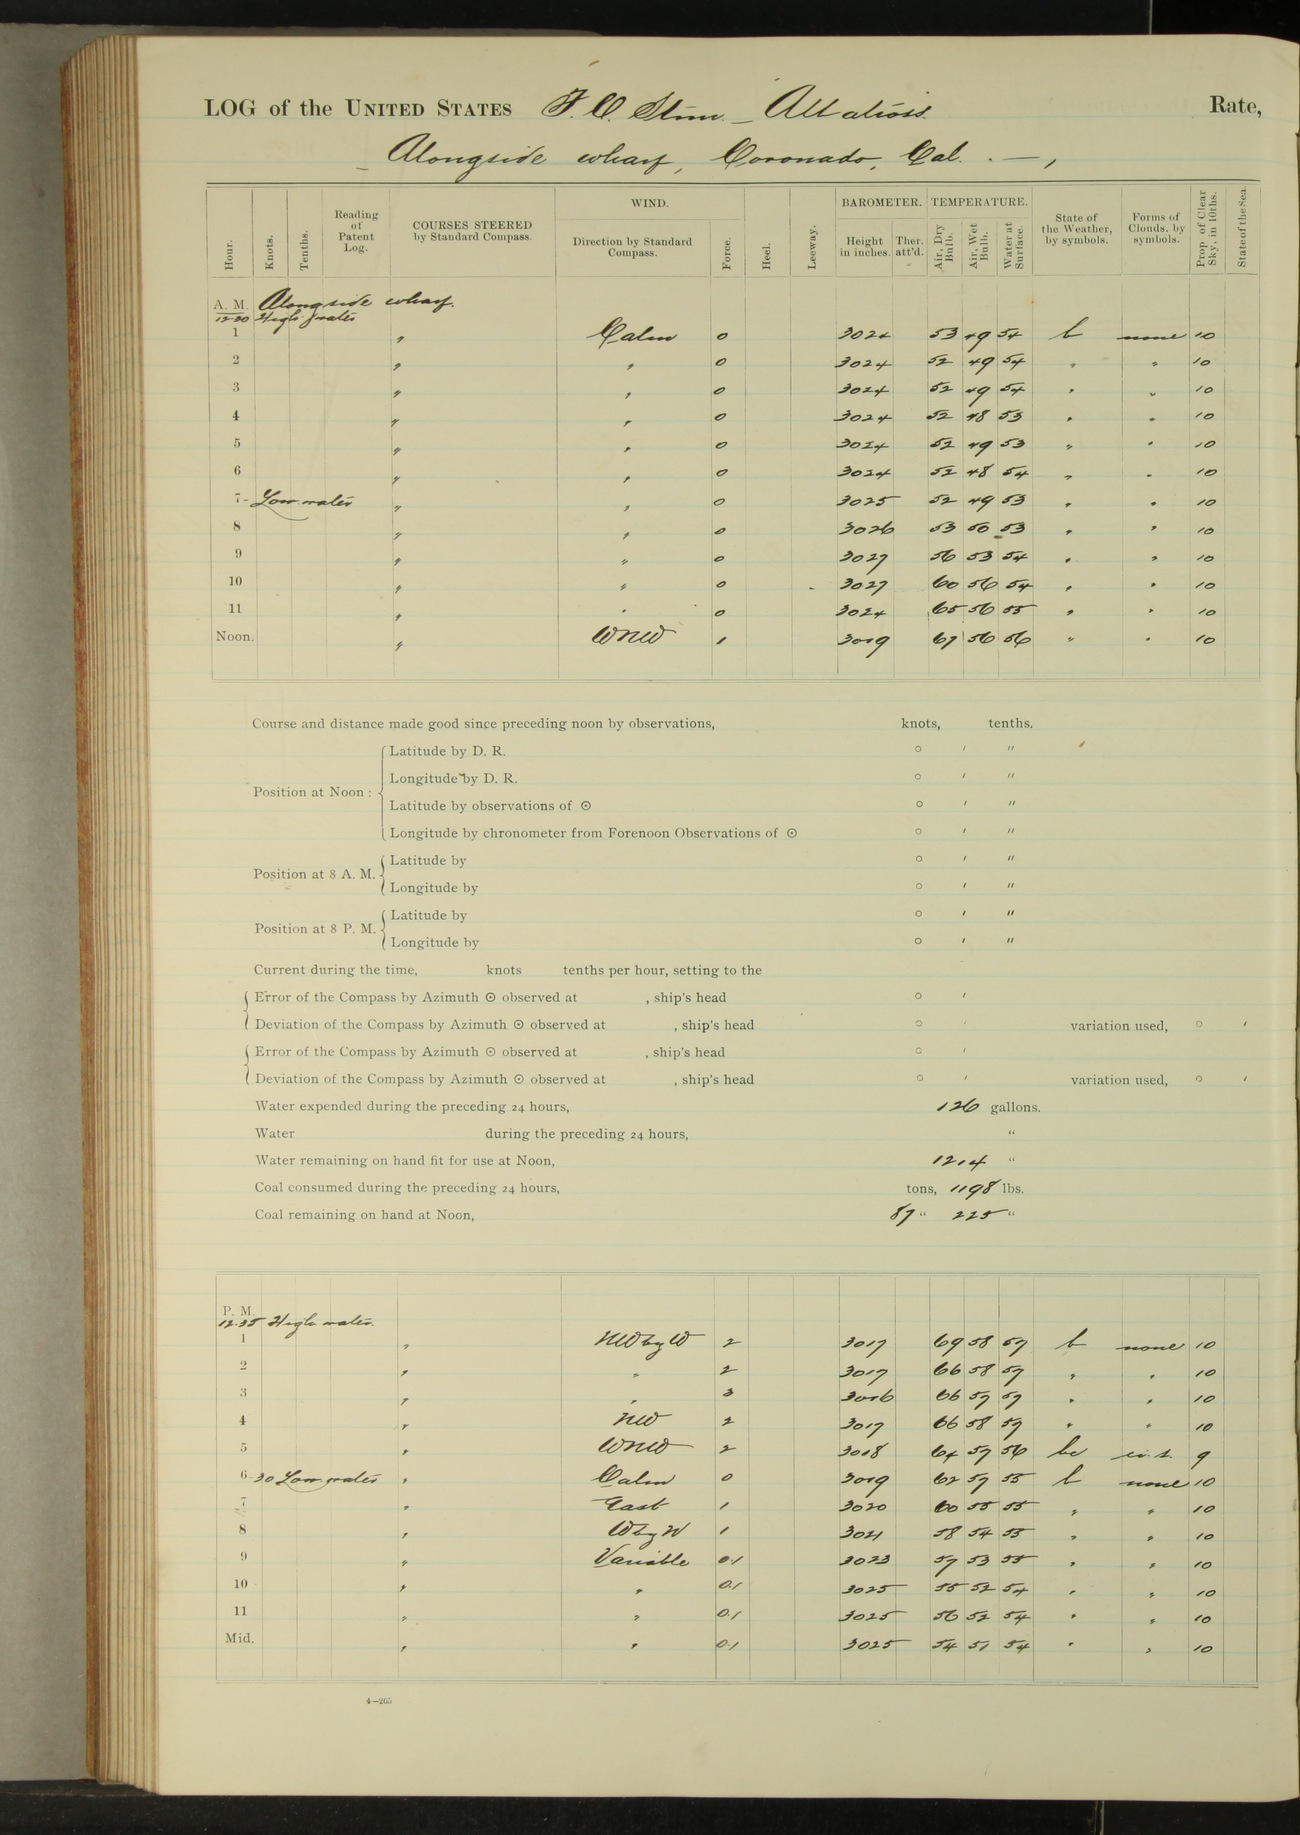 LOG of the UNITED STATES F. C. Stmr. Albatross Rate,
Alongside wharf, Coronado, Cal.
Hour. Knots. Tenths. Reading of Patent Log. COURSES STEERED by Standard Compass. WIND. Direction by Standard Compass. Force. Heel. Leeway. BAROMETER. Height in inches. Ther. att'd. TEMPERATURE. Air, Dry Bulb. Air, Wet Bulb. Water at Surface. State of the Weather, by symbols. Forms of Clouds, by symbols. Prop. of Clear Sky, in 10ths. State of the Sea.
A. M. Alongside wharf.
12-20 High water
1 " Calm 0 3024 53 49 54 b none 10
2 " " 0 3024 52 49 54 " " 10
3 " " 0 3024 52 49 54 " " 10
4 " " 0 3024 52 48 53 " " 10
5 " " 0 3024 52 49 53 " " 10
6 " " 0 3024 52 48 54 " " 10
7- Low water " " 0 3025 52 49 53 " " 10
8 " " 0 3026 53 50 53 " " 10
9 " " 0 3027 56 53 54 " " 10
10 " " 0 3027 60 56 54 " " 10
11 " " 0 3024 65 56 55 " " 10
Noon. " WNW 1 3019 67 56 56 " " 10
Course and distance made good since preceding noon by observations, knots, tenths.
Position at Noon : Latitude by D. R. ° ′ ″
Longitude by D. R. ° ′ ″
Latitude by observations of ⊙ ° ′ ″
Longitude by chronometer from Forenoon Observations of ⊙ ° ′ ″
Position at 8 A. M. Latitude by ° ′ ″
Longitude by ° ′ ″
Position at 8 P. M. Latitude by ° ′ ″
Longitude by ° ′ ″
Current during the time, knots tenths per hour, setting to the
Error of the Compass by Azimuth ⊙ observed at , ship's head ° ′
Deviation of the Compass by Azimuth ⊙ observed at , ship's head ° ′ variation used, ° ′
Error of the Compass by Azimuth ⊙ observed at , ship's head ° ′
Deviation of the Compass by Azimuth ⊙ observed at , ship's head ° ′ variation used, ° ′
Water expended during the preceding 24 hours, 126 gallons.
Water during the preceding 24 hours, "
Water remaining on hand fit for use at Noon, 1214 "
Coal consumed during the preceding 24 hours, tons, 1198 lbs.
Coal remaining on hand at Noon, 87 " 225 "
P. M.
12.35 High water.
1 " NW by W 2 3017 69 58 57 b none 10
2 " " 2 3017 66 58 57 " " 10
3 " " 3 3016 66 57 57 " " 10
4 " NW 2 3017 66 58 57 " " 10
5 " WNW 2 3018 64 57 56 bc ci. s. 9
6-30 Low water " Calm 0 3019 62 57 55 b none 10
7 " East 1 3020 60 55 55 " " 10
8 " W by N 1 3021 58 54 55 " " 10
9 " Variable 0.1 3023 57 53 55 " " 10
10 " " 0.1 3025 55 52 54 " " 10
11 " " 0.1 3025 56 52 54 " " 10
Mid. " " 0.1 3025 54 51 54 " " 10
4—265